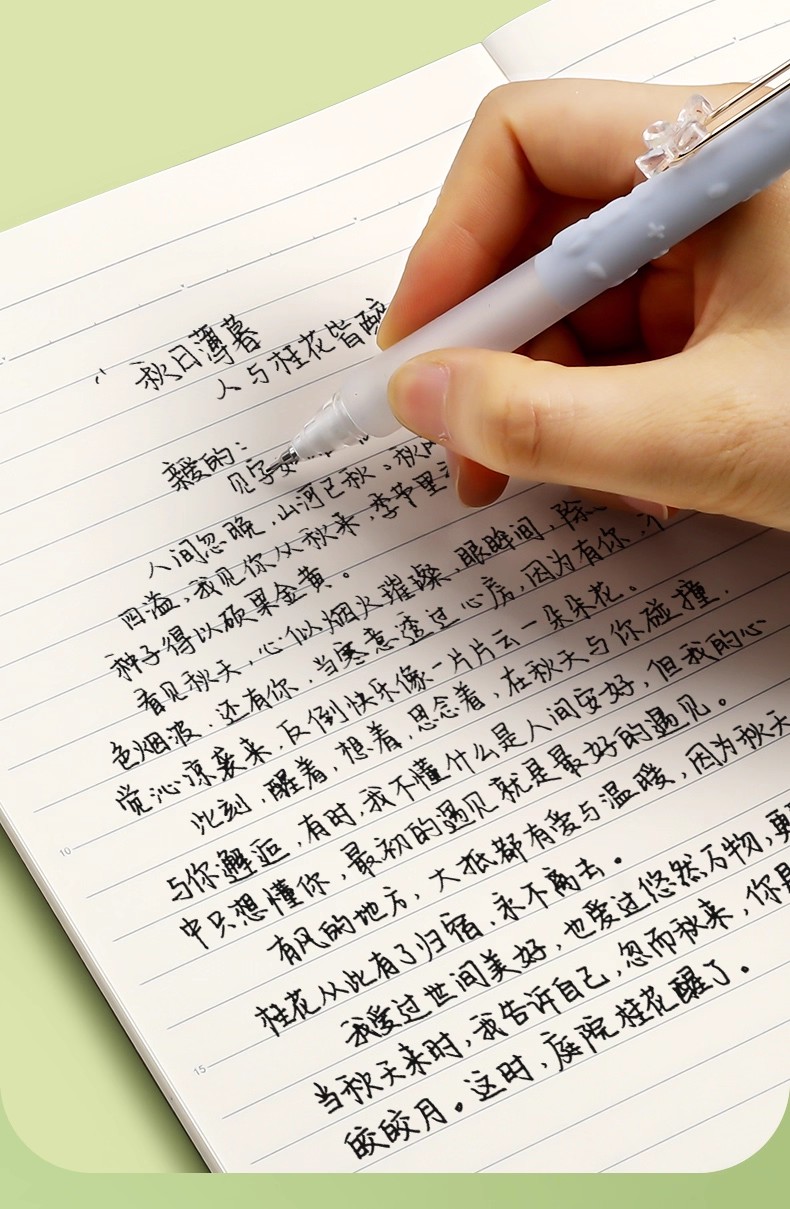 “秋日薄暮
人与桂花皆醉
亲爱的：
见字
人间忽晚，山河已秋。秋
四溢，我见你从秋来，季节里
种子得以硕果金黄。
看见秋天，心似烟火璀璨，眼眸间，除
色烟波，还有你，当寒意透过心房，因为有你，
觉沁凉袭来，反倒快乐像一片片云一朵朵花。
此刻，醒着，想着，思念着，在秋天与你碰撞，
与你邂逅，有时，我不懂什么是人间安好，但我的心
中只想懂你，最初的遇见就是最好的遇见。
有风的地方，大抵都有爱与温暖，因为秋天
桂花从此有了归宿，永不离去。
我爱过世间美好，也爱过悠然万物，更
当秋天来时，我告诉自己，忽而秋来，你是
皎皎月。这时，庭院桂花醒了。
10
15